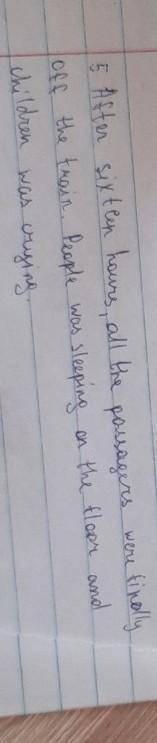 5 After sixteen hours, all the passagers were finally
off the train. People was sleeping on the floor and
children was crying.